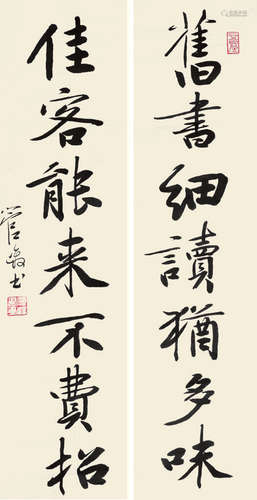 舊書細讀猶多味
佳客能来不費招
管峻书